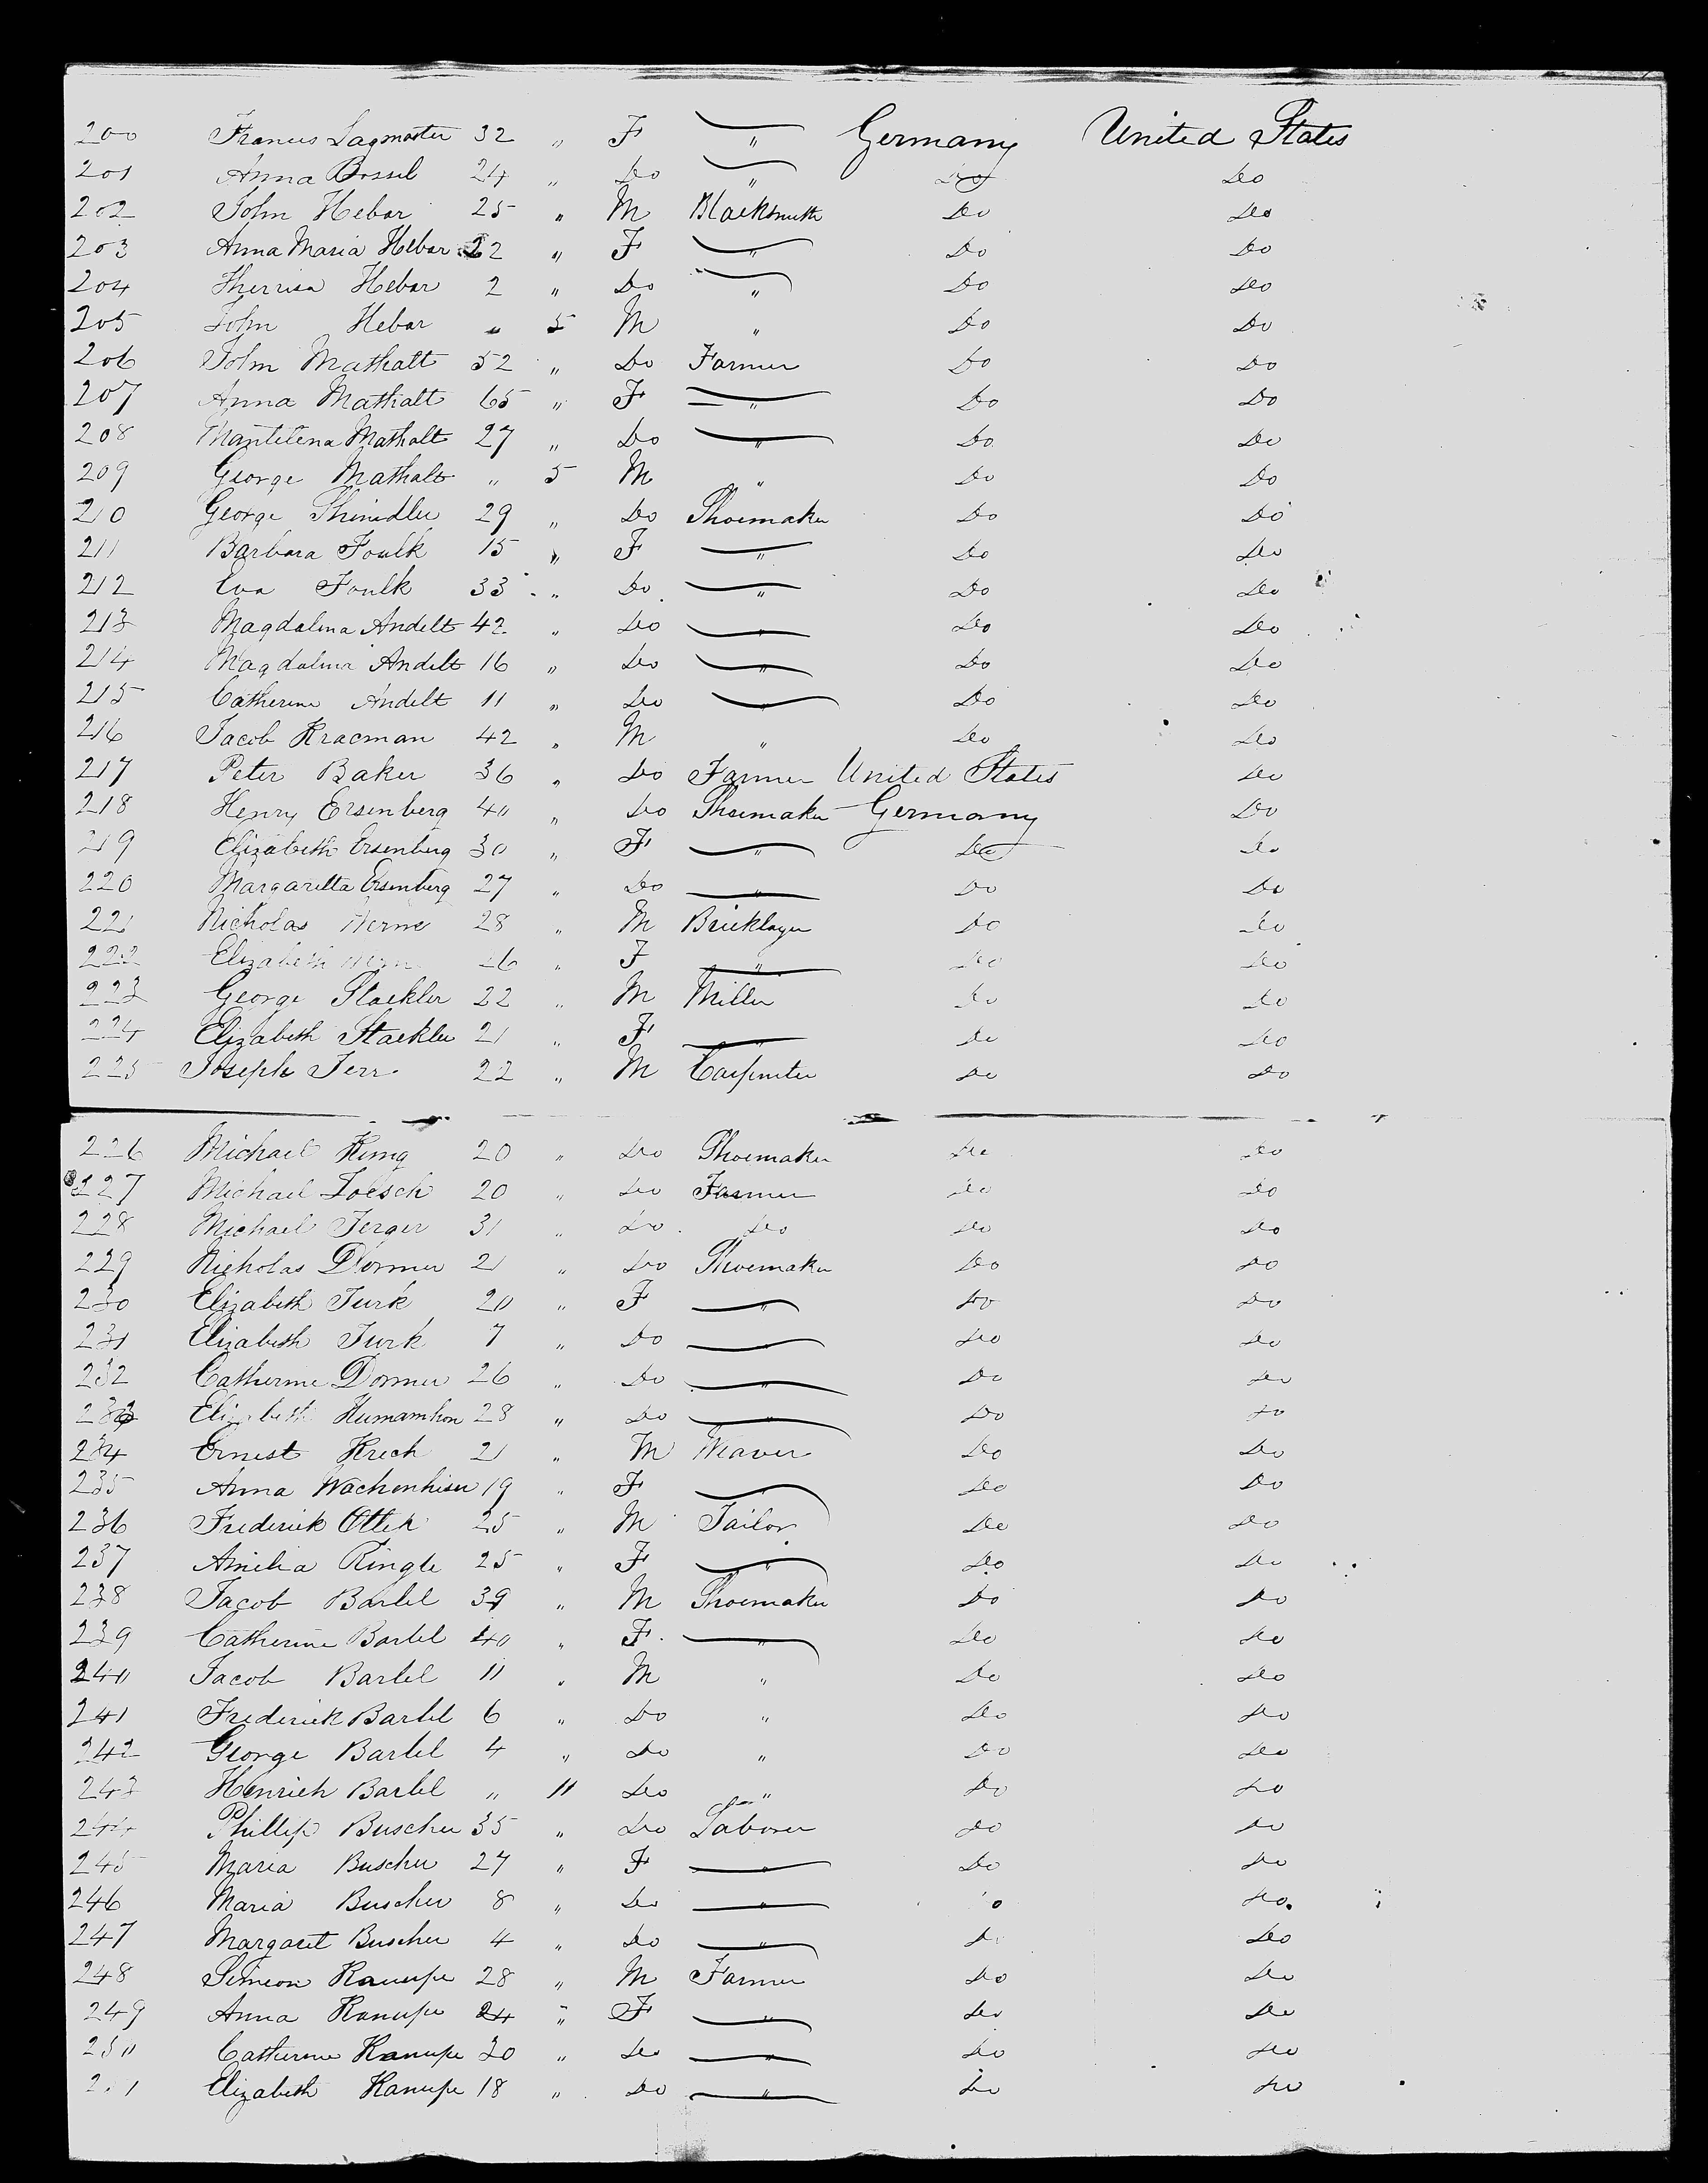 200 Frances Lagmaster 32 " F " Germany United States
201 Anna Bossel 24 " Do " Do Do
202 John Hebar 25 " M Blacksmith Do Do
203 Anna Maria Hebar 22 " F " Do Do
204 Therrisa Hebar 2 " Do " Do Do
205 John Hebar " 5 M " Do Do
206 John Mathalt 52 " Do Farmer Do Do
207 Anna Mathalt 65 " F " Do Do
208 Mathalt 27 " Do " Do Do
209 George Mathalt " 5 M " Do Do
210 George Shindler 29 " Do Shoemaker Do Do
211 Barbara Foulk 15 " F " Do Do
212 Eva Foulk 33 " Do " Do Do
213 Magdalina Andelt 42 " Do " Do Do
214 Magdalina Andelt 16 " Do " Do Do
215 Catherine Andelt 11 " Do " Do Do
216 Jacob Kracman 42 " M " Do Do
217 Peter Baker 36 " Do Farmer United States Do
218 Henry Ersenberg 40 " Do Shoemaker Germany Do
219 Elizabeth Ersenberg 30 " F " Do Do
220 Margaretta Ersenberg 27 " Do " Do Do
221 Nicholas 28 " M Bricklayer Do Do
222 Elizabeth 26 " F " Do Do
223 George Stackler 22 " M Miller Do Do
224 Elizabeth Stackler 21 " F " Do Do
225 Joseph Ferr 22 " M Carpenter Do Do
226 Michael King 20 " Do Shoemaker Do Do
227 Michael Loesch 20 " Do Farmer Do Do
228 Michael Ferger 31 " Do Do Do Do
229 Nicholas Dormer 21 " Do Shoemaker Do Do
230 Elizabeth Turk 20 " F " Do Do
231 Elizabeth Turk 7 " Do Do Do
232 Catherine Dormer 26 " Do " Do Do
233 Elizabeth 28 " Do " Do Do
234 Ernest Krech 21 " M Weaver Do Do
235 Anna Wachenhiser 19 " F " Do Do
236 Frederick 25 " M Tailor Do Do
237 Amelia Ringle 25 " F " Do Do
238 Jacob Bartel 39 " M Shoemaker Do Do
239 Catherine Bartel 40 " F " Do Do
240 Jacob Bartel 11 " M " Do Do
241 Frederick Bartel 6 " Do " Do Do
242 George Bartel 4 " Do " Do Do
243 Henrich Bartel " 11 Do " Do Do
244 Phillip Buscher 35 " Do Laborer Do Do
245 Maria Buscher 27 " F " Do Do
246 Maria Buscher 8 " Do " Do Do
247 Margaret Buscher 4 " Do " Do Do
248 Simeon Kanupe 28 " M Farmer Do Do
249 Anna Kanupe 24 " F " Do Do
250 Catherine Kanupe 30 " Do " Do Do
251 Elizabeth Kanupe 18 " Do " Do Do